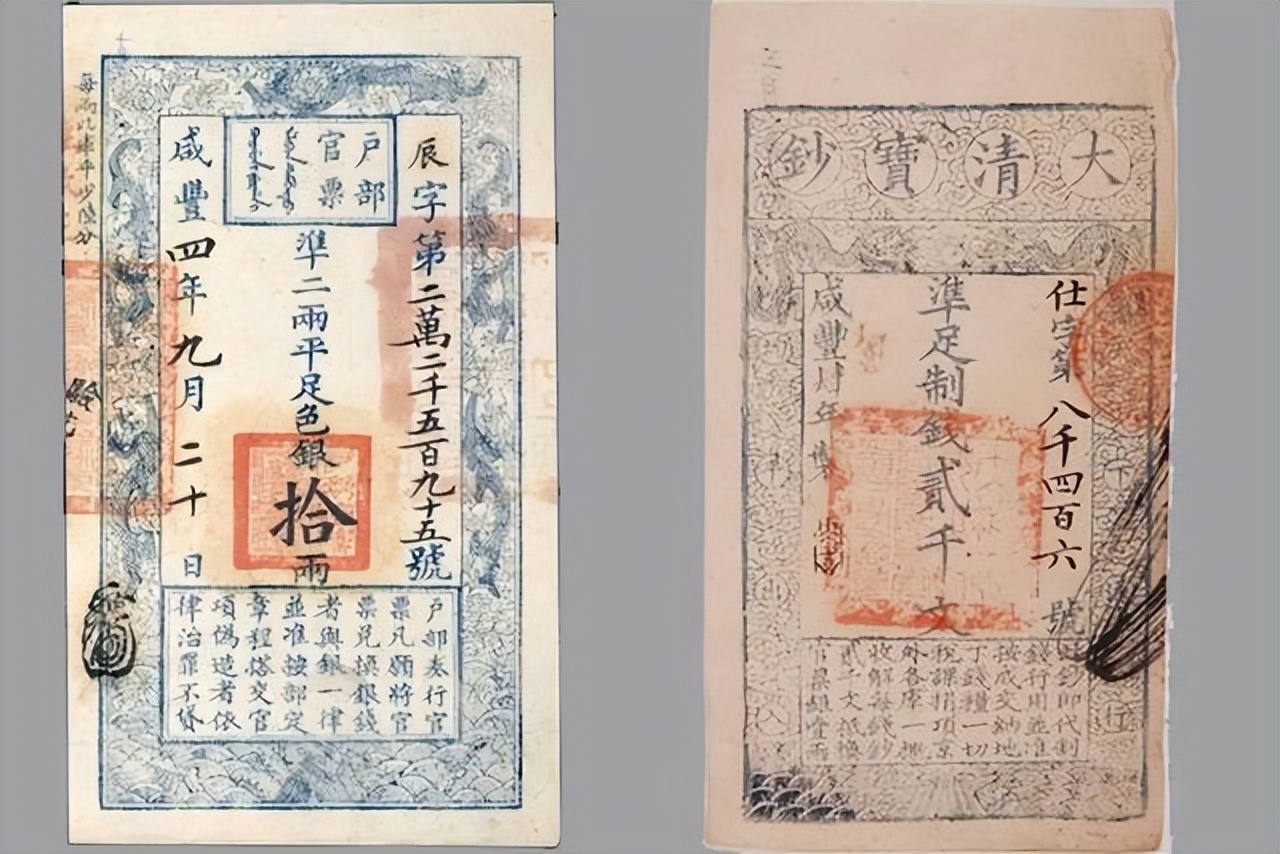 户部
官票
辰字第二萬二千五百九十五號
準二兩平足色銀拾兩
咸豐四年九月二十日
户部奏行官
票凡願將官
票兑換銀錢
者與銀一律
並准按部定
章程搭交官
項偽造者依
律治罪不貸
大清寶鈔
仕字第八千四百六號
準足制錢貳千文
咸豐肆年製
此鈔即代制
錢行用並准
按成交納地
丁錢糧一切
稅課捐項京
外各庫一概
收解每錢鈔
貳千文抵換
官票銀壹兩